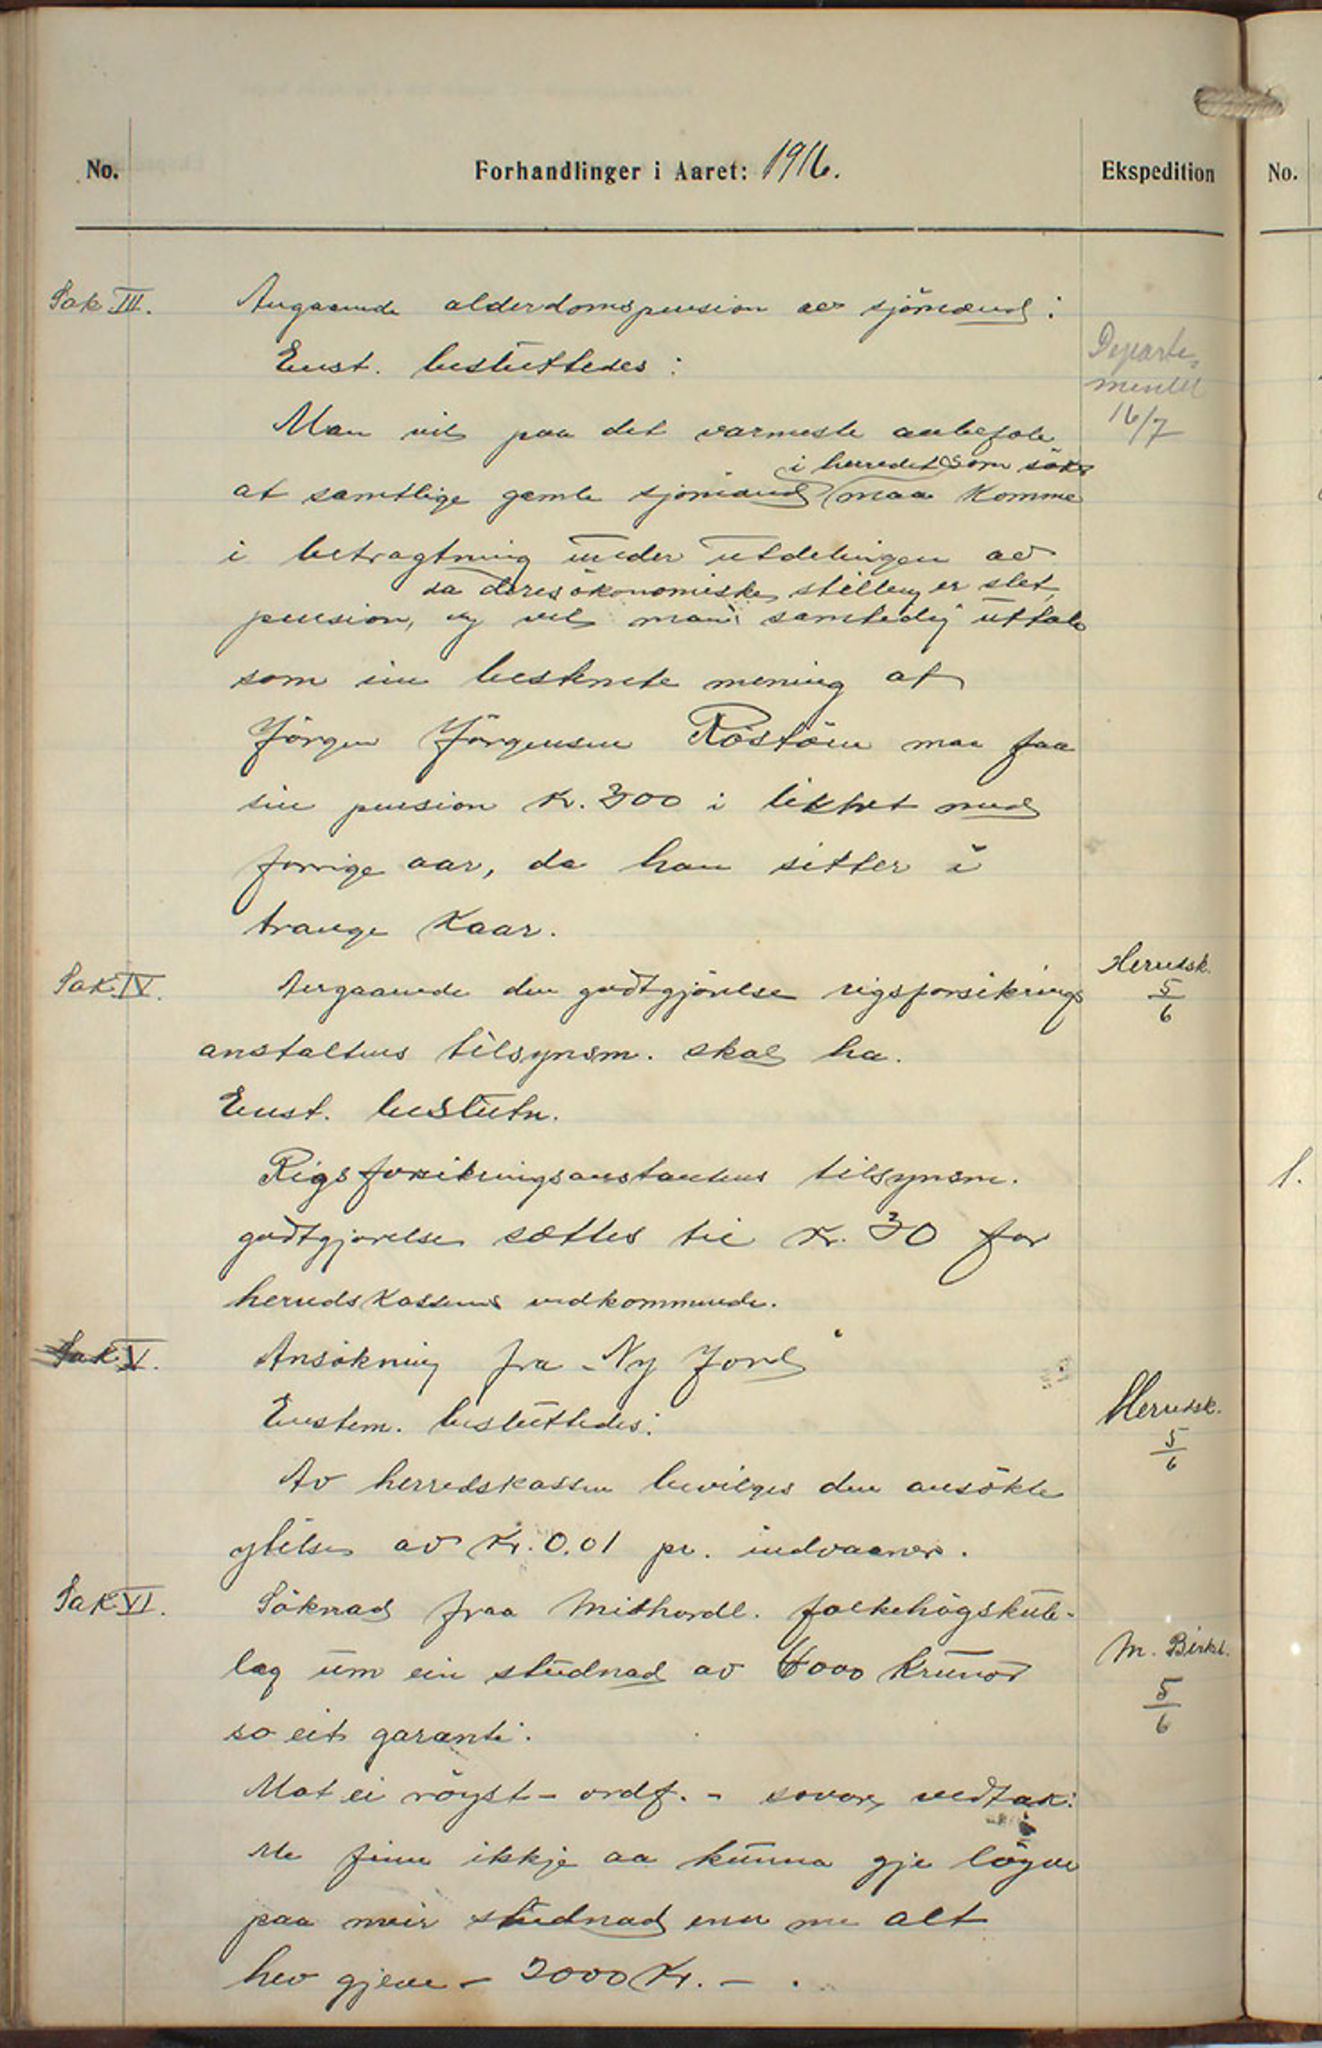 No.
Forhandlinger i Aaret: 1916.
Ekspedition
No.
Sak III.
Angaaende alderdomspension av sjömænd:
Enst. besluttedes:
Departe-
mentet
16/7
Man vil paa det varmeste anbefale
i herredet som söker
at samtlige gamle sjömænd maa komme
i betragtning under utdelingen av
da deres ökonomiske stilling er slet,
pension, og vil man samtidig uttale
som sin bestemte mening at
Jörgen Jörgensen maa faa
sin pension Kr. 300 i likhet med
forrige aar, da han sitter i
trange kaar.
Sak IV.
Angaaende den godtgjörelse rigsforsikrings
Herredsk.
5/6
anstaltens tilsynsm. skal ha.
Enst. beslutn.
Rigsforsikringsanstaltens tilsynsm.
godtgjörelse sættes til Kr. 30 for
herredskassens vedkommende.
Sak V.
Ansökning fra "Ny Jord"
Enstem. besluttedes:
Herredsk.
5/6
Av herredskassen bevilges den ansökte
ytelse av Kr. 0.01 pr. indvaaner.
Sak VI.
Söknad fraa Midhordl. folkehögskule-
lag um ein studnad av krunor
M. Birkel.
5/6
so eit garanti.
Mot ei röyst - ordf. - sovore vedtak:
Me finn ikkje aa kunna gje lögve
paa meir studnad enn me alt
hev gjeve - 2000 Kr. - .
1.